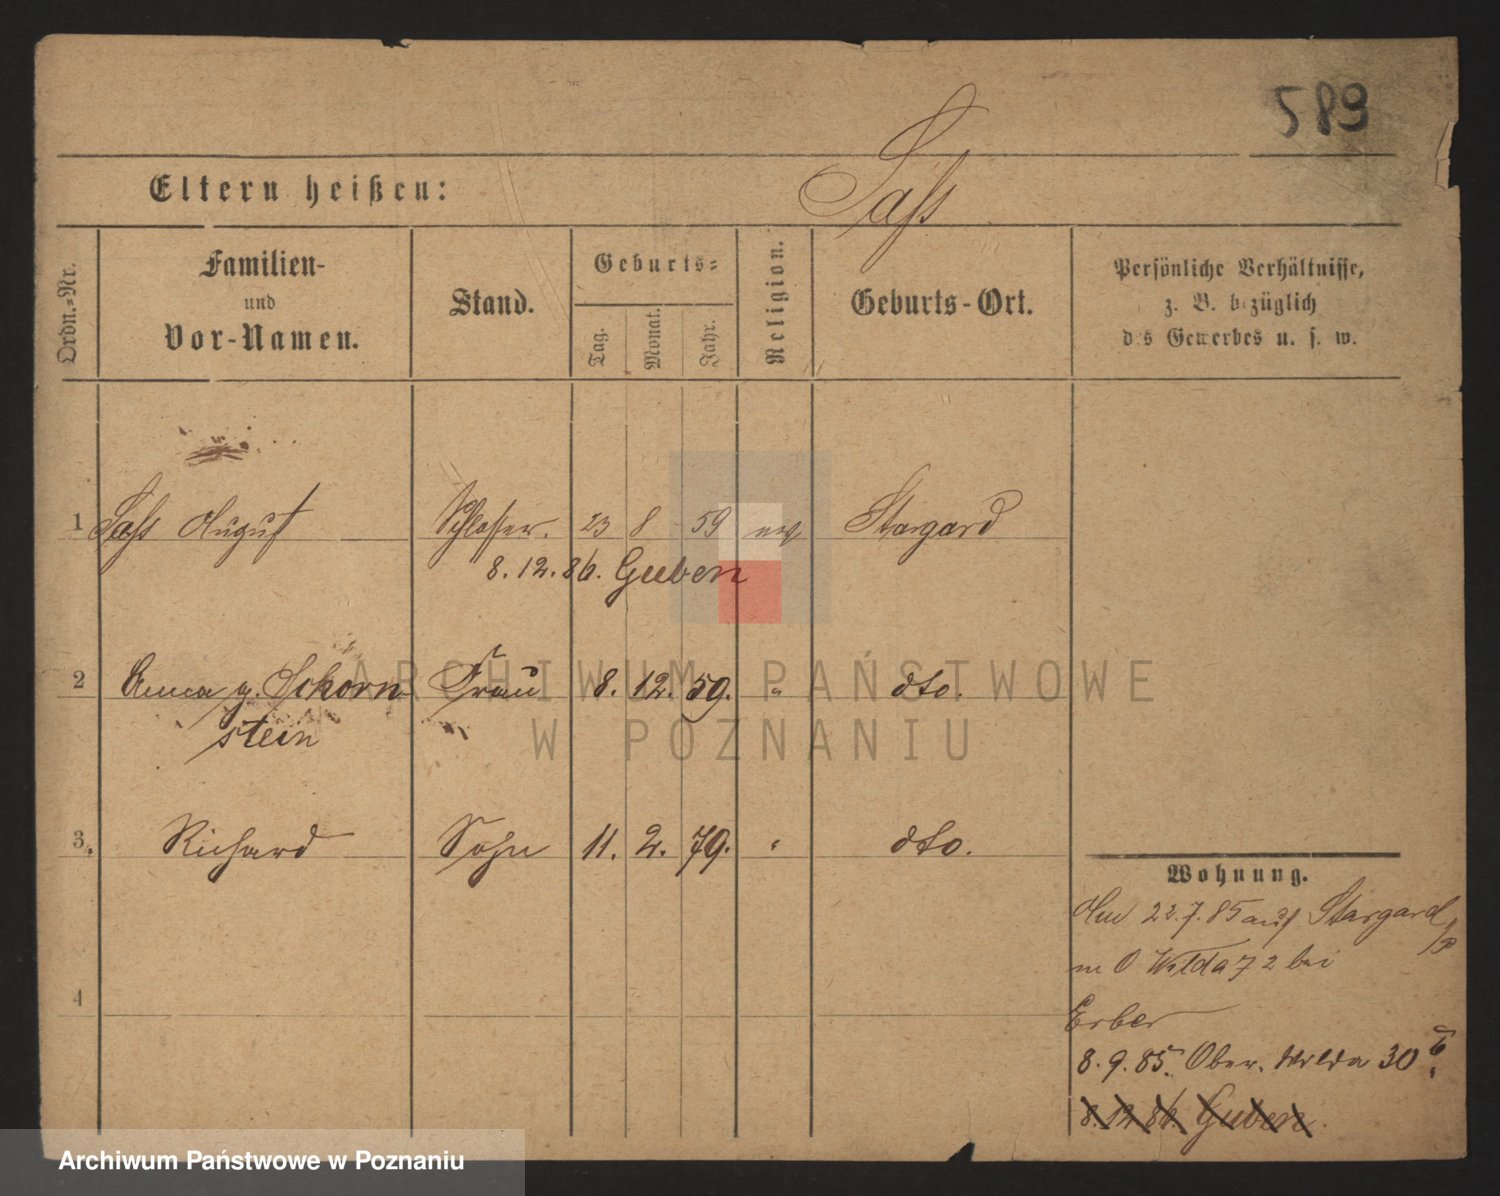 589
Eltern heißen: Saß
Ordn.-Nr.
Familien-
und
Vor-Namen.
Stand.
Geburts-
Tag.
Monat.
Jahr.
Religion.
Geburts-Ort.
Persönliche Verhältnisse,
z. B. bezüglich
des Gewerbes u. s. w.
1 Saß August Schlosser. 23 8 59 ev Stargard
8.12.86. Guben
2 Anna g. Schorn Frau 8. 12. 59. " dto.
stein
3. Richard Sohn 11. 2. 79. " dto.
4
Wohnung.
22.7.85 auf Stargard
O Wilda 72 bei
Erber
8.9.85. Ober. Wilda 30
8.12.86. Guben.
ARCHIWUM PAŃSTWOWE
W POZNANIU
Archiwum Państwowe w Poznaniu